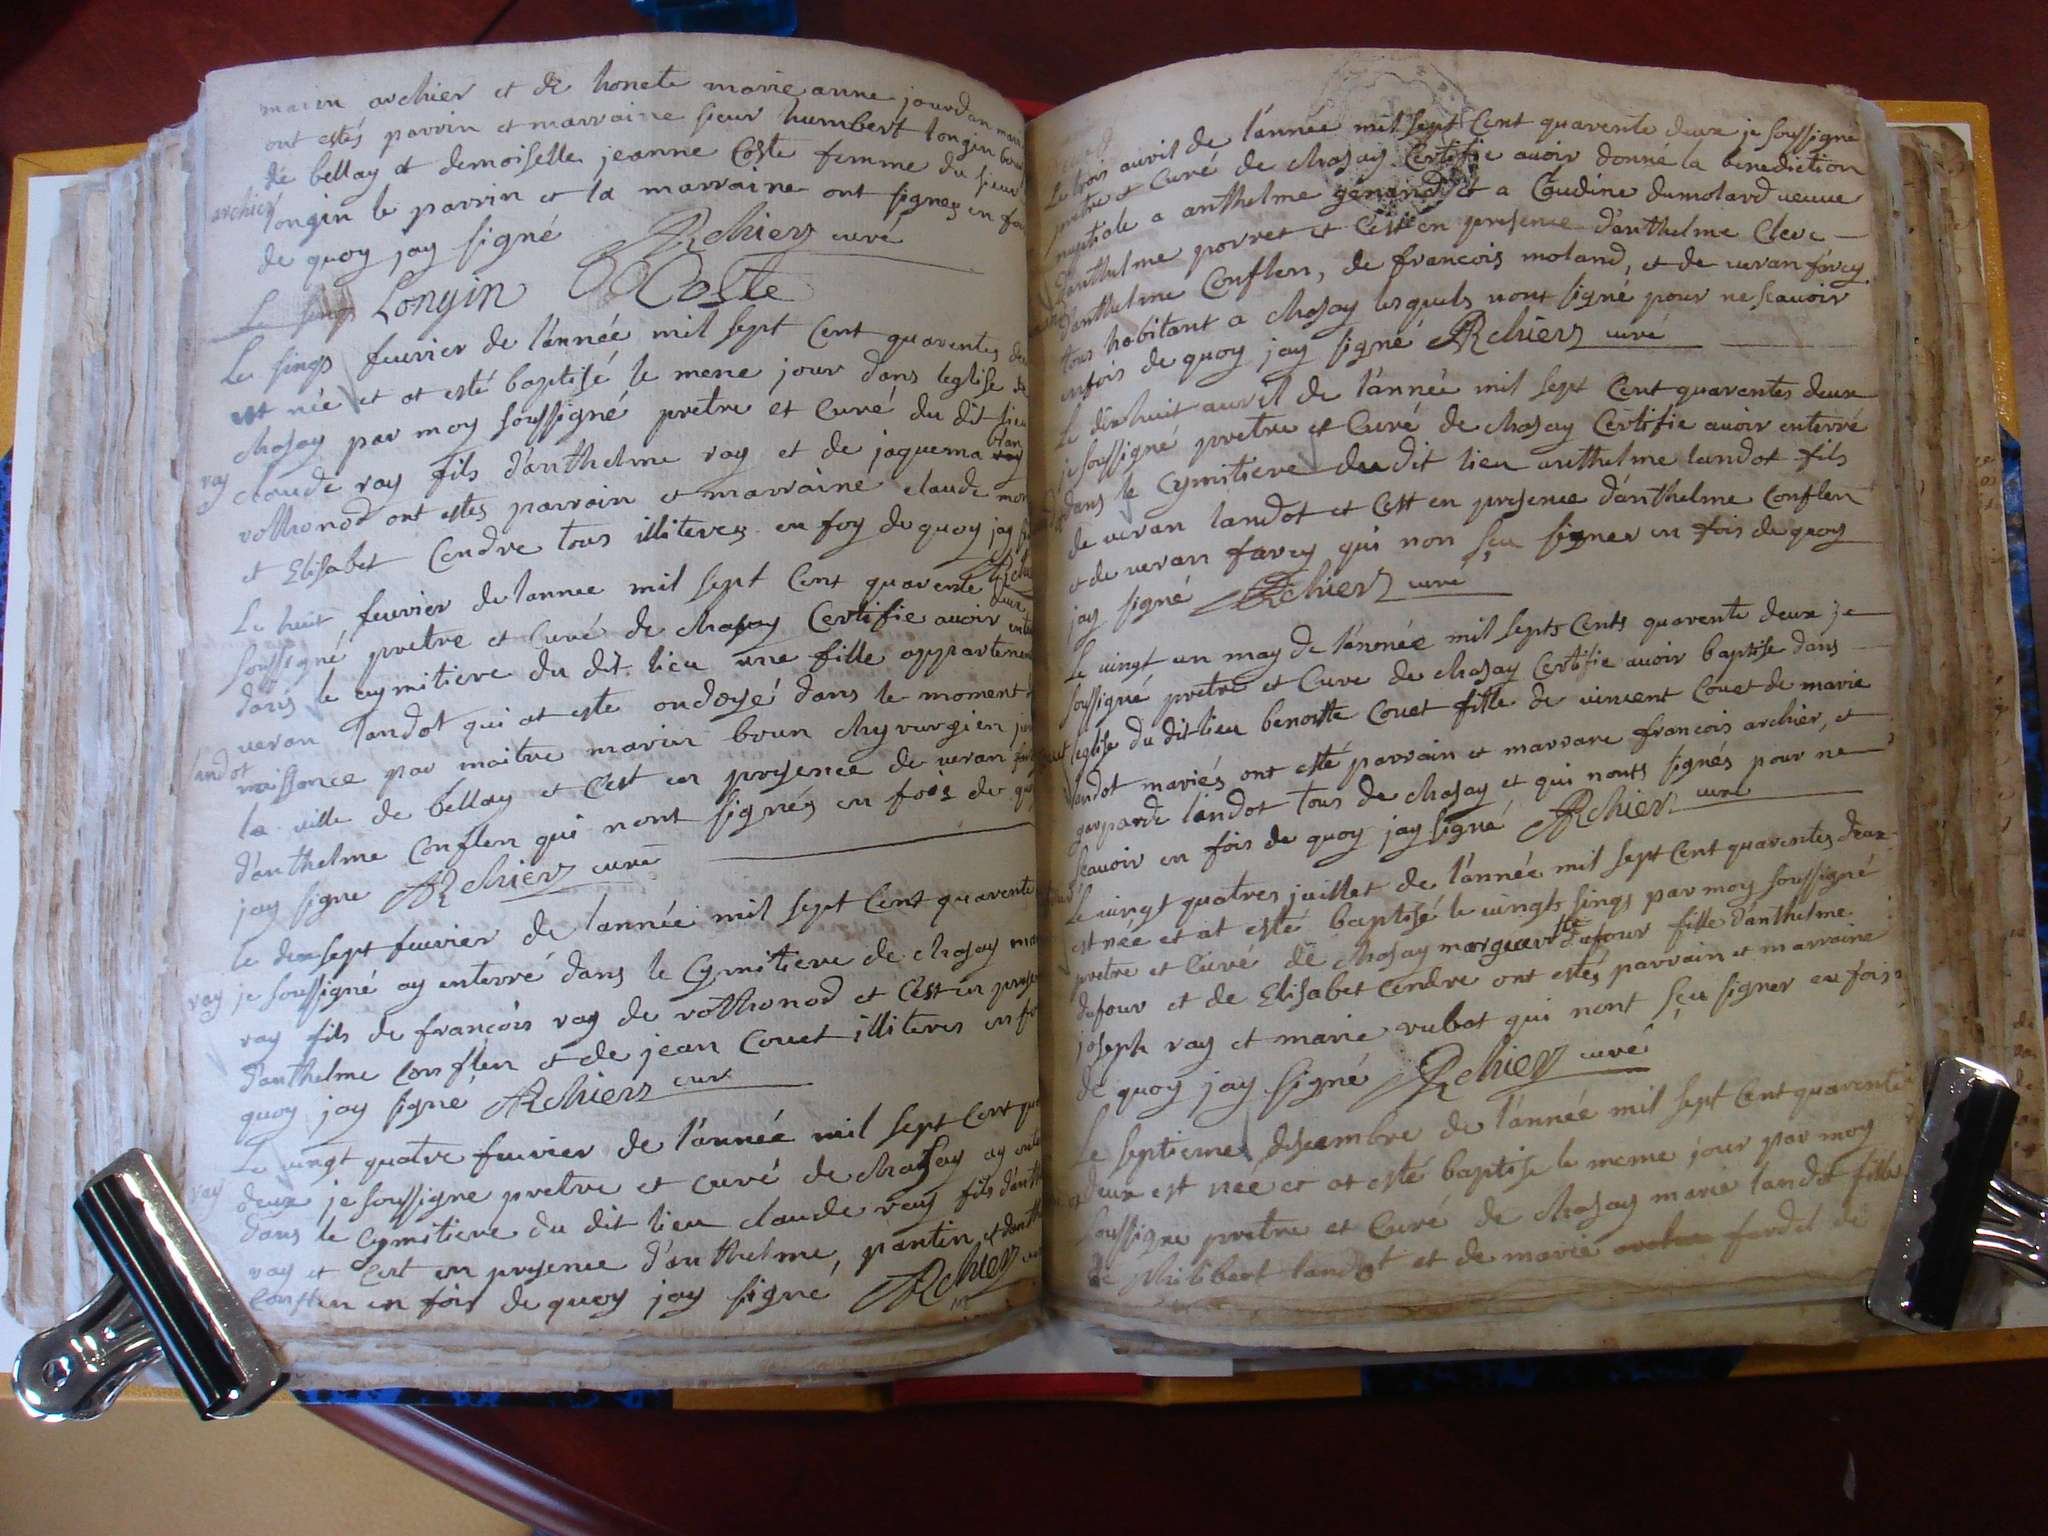 marin archier et de honete marie anne jourdan
ont estés parrin et marraine sieur humbert longin
de bellay et demoiselle jeanne Coste femme du sieur
archier
longin le parrin et la marraine ont signes en
de quoy jay signé Archier curé
Longin Coste
Le sings feuvrier de l'année mil sept cent quarentes
est née et at esté baptisé le meme jour dans leglise de
chasay par moy soussigné pretre et Curé du dit lieu
ray
claude ray fils d'anthelme ray et de jaquema
rothonod ont estes parrain et marraine claude
et Elisabet Cendre tous illiteres en foy de quoy jay
Le huit feuvrier de lannee mil sept Cent quarente deux
soussigné pretre et Curé de chasay Certifie auoir
dans le cymitiere du dit lieu une fille appartenen
ueran landot qui at este ondoyé dans le moment
landot
naissance par maitre marin brun chyrurgien
la ville de bellay et C'est en presence de ueran
d'anthelme Conflen qui nont signés en fois de
jay signe Archier curé
le dixsept feuvrier de lannée mil sept Cent quarente
ray
je soussigné ay enterré dans le Cymitiere de chasay
ray fils de francois ray de rothonod et C'est en
d'anthelme Conflen et de jean Couet illiteres en
quoy jay signé Archier cur
Le uingt quatre feuvrier de l'année mil sept Cent
ray
deux je soussigne pretre et curé de chasay ay
dans le cymitiere du dit lieu claude ray fils
ray et C'est en presence d'anthelme, pantin, et
Conflen en fois de quoy jay signé Archier
Le trois auvril de l'année mil sept Cent quarente deux je soussigné
pretre et Curé de chasay Certifie auoir donné la benediction
nuptiale a anthelme genand et a Coudine dumoland ueuue
d'anthelme porret et C'est en presence d'anthelme Cleve
d'anthelme Conflen, de francois moland, et de ueran farcy
tous habitant a chasay lesquels nont signé pour ne scauoir
enfois de quoy jay signé Archier curé
Le dix huit auvril de l'année mil sept Cent quarentes deux
je soussigné pretre et Curé de chasay Certifie auoir enterré
dans le Cymitiere du dit lieu anthelme landot fils
de ueran landot et C'est en presence d'anthelme Conflen
et de ueran farcy qui non sçu signer en fois de quoy
jay signé Archier curé
Le uingt un may de l'année mil septs Cents quarente deux je
soussigné pretre et Cure de chasay Certifie auoir baptise dans
leglise du dit lieu benoitte Couet fille de uincent Couet de marie
landot mariés ont esté parrain et marrare francois archier, et
gasparde landot tous de chasay et qui nonts signés pour ne
scauoir en fois de quoy jay signé Archier curé
Le uingt quatres juillet de l'année mil sept Cent quarentes deux
est née et at esté baptisé le uingts sings par moy soussigné
pretre et Curé de chasay marguerite dufour fille d'anthelme
dufour et de Elisabet Cendre ont estés parrain et marraine
joseph ray et marie rubat qui nont sçu signer en fois
de quoy jay signé Archier curé
Le septieme desembre de l'année mil sept Cent quarente
deux est née et at esté baptise le meme jour par moy
soussigne pretre et Curé de chasay marie landot fille
de philibert landot et de marie fardel de